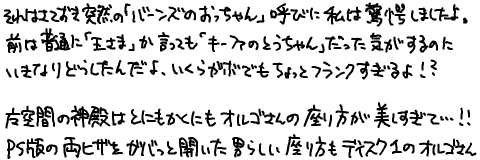 それはさておき突然の「バーンズのおっちゃん」呼びに私は驚愕しましたよ。
前は普通に「王さま」か言っても「キーファのとうちゃん」だった気がするのに
いきなりどうしたんだよ、いくらガボでもちょっとフランクすぎるよ!?
左空間の神殿はとにもかくにもオルゴさんの座り方が美しすぎて…!!
PS版の両ヒザをがばっと開いた男らしい座り方もディスク1のオルゴさん